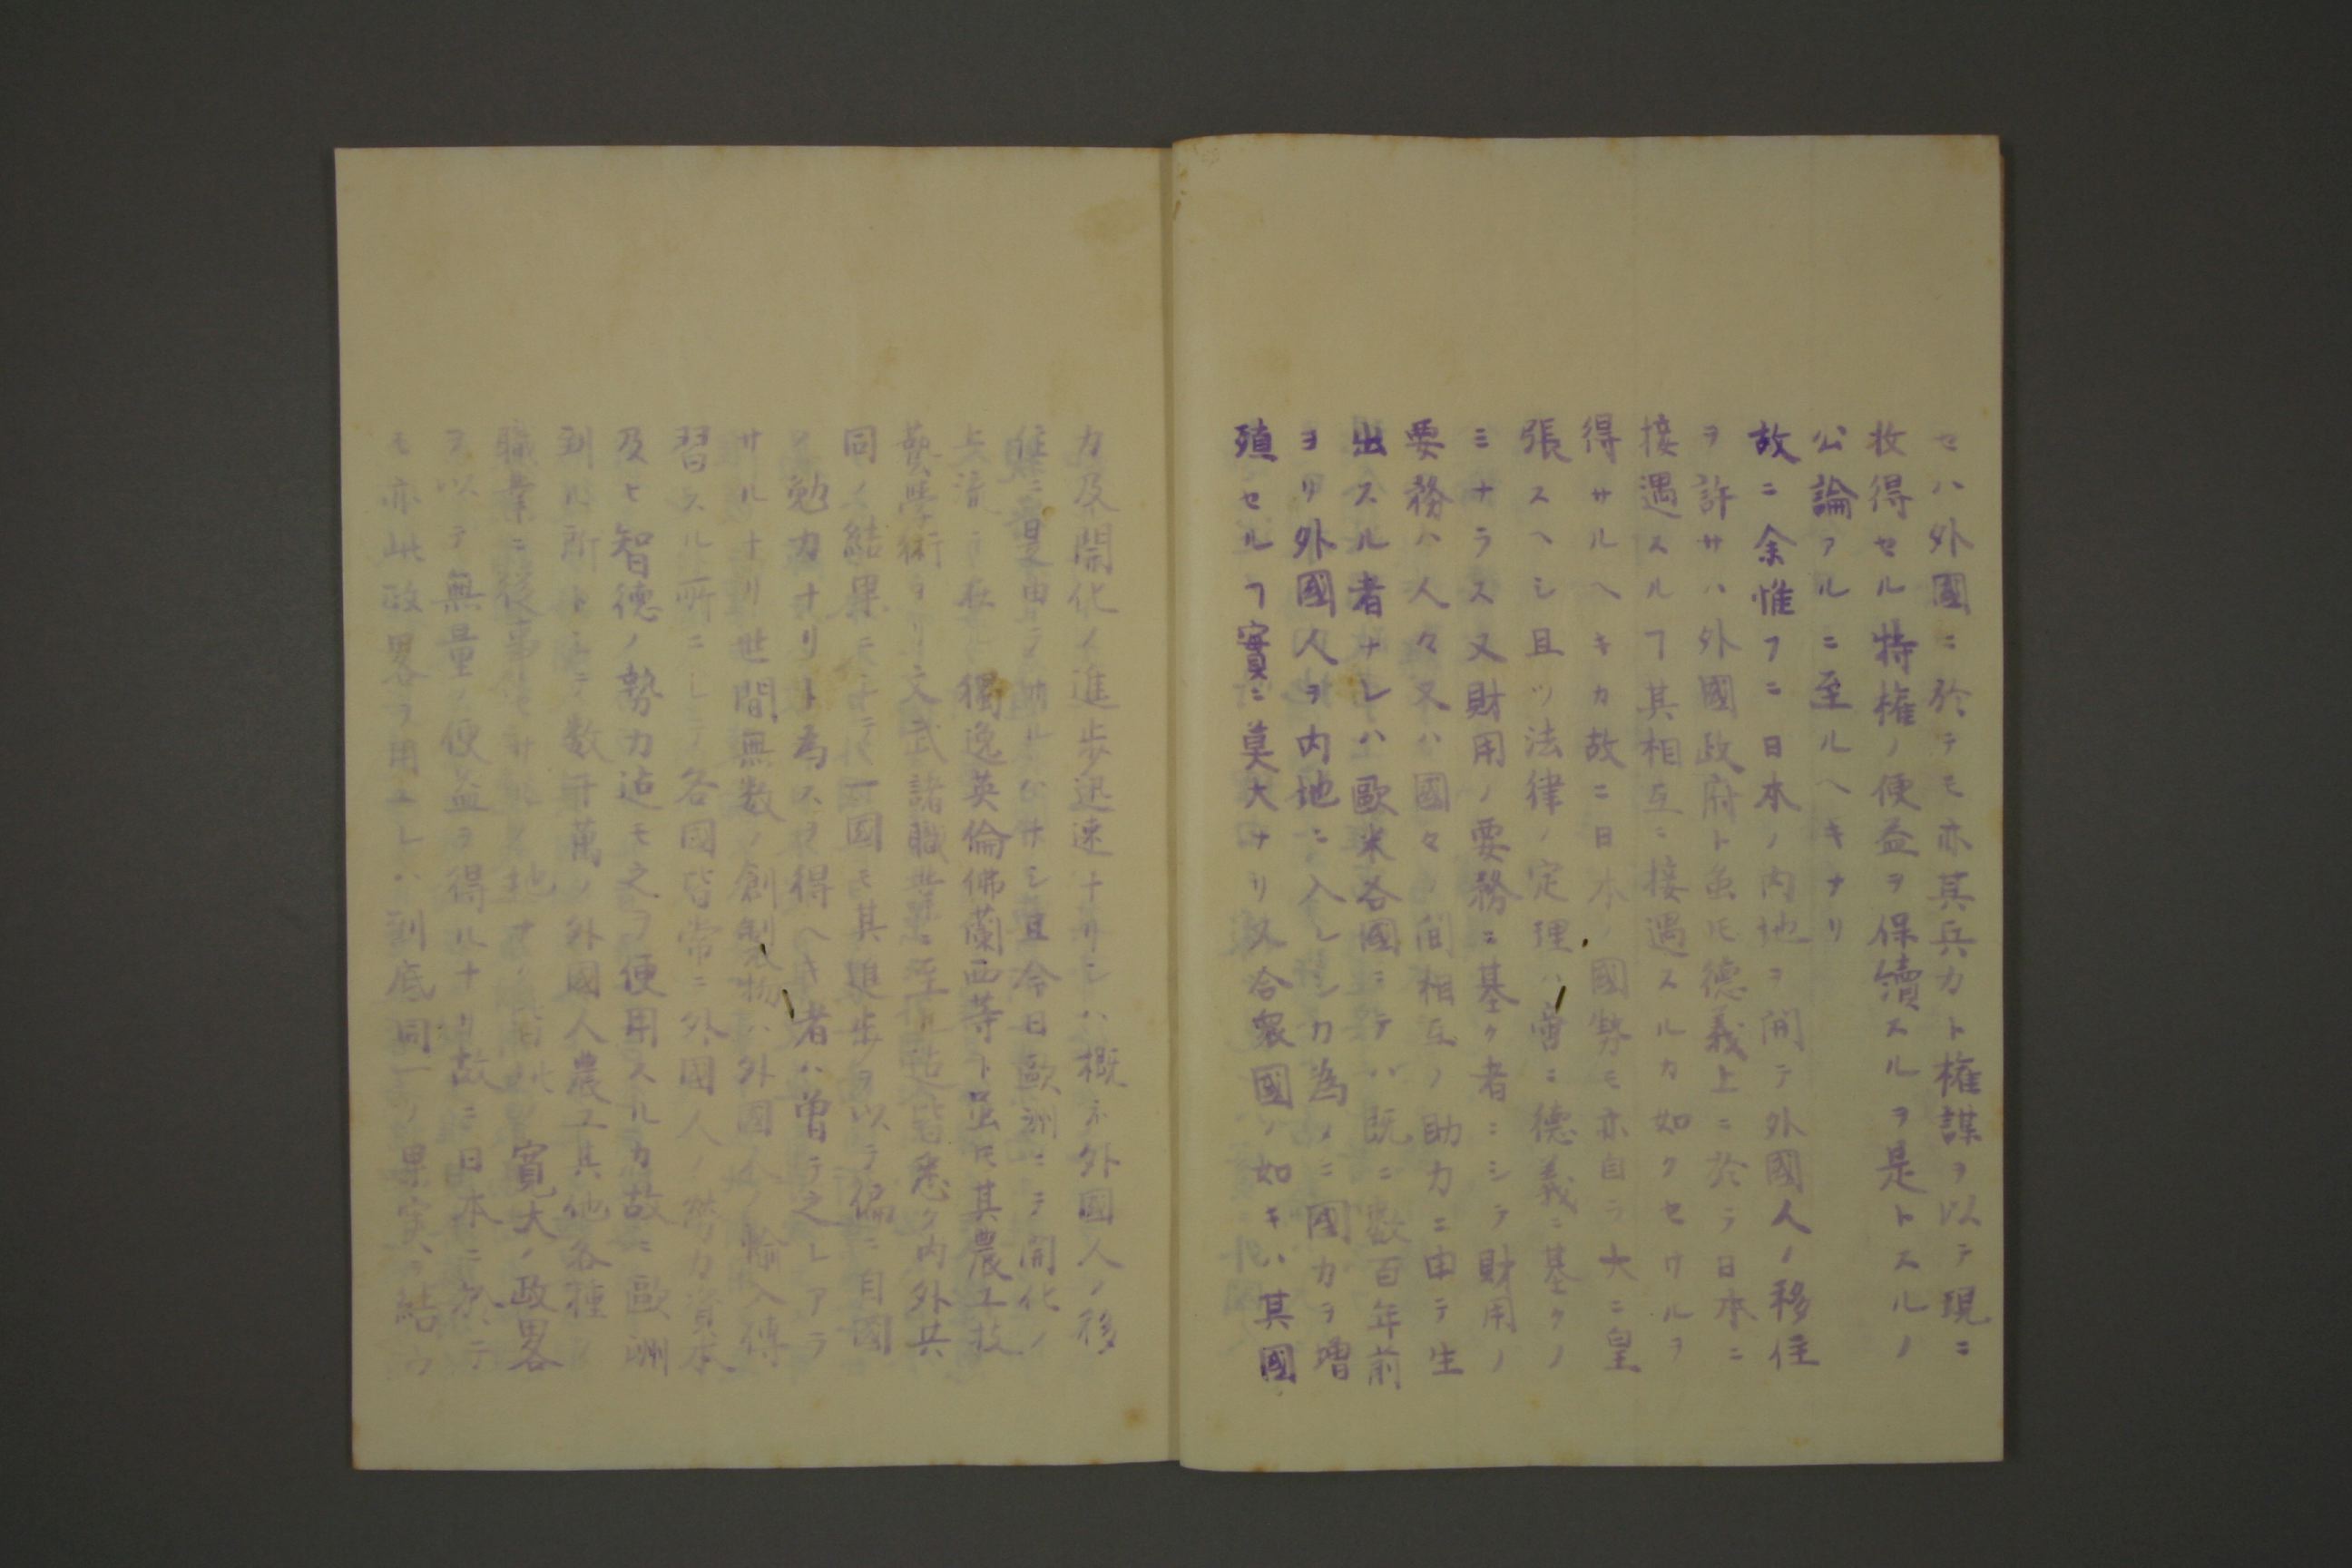 セハ外國ニ於テモ亦其兵力ト権謀ヲ以テ現ニ
收得セル特権ノ便益ヲ保續スルヲ是トスルノ
公論アルニ至ルヘキナリ
故ニ余惟フニ日本ノ内地ヲ開テ外國人ノ移住
ヲ許サハ外國政府ト虽𪜈德義上ニ於テ日本ニ
接遇スルヿ其相互ニ接遇スルカ如クセサルヲ
得サルヘキカ故ニ日本ノ國勢モ亦自ラ大ニ皇
張スヘシ且ツ法律ノ定理ハ啻ニ德義ニ基クノ
ミナラス又財用ノ要務ニ基ク者ニシテ財用ノ
要務ハ人々又ハ國々ノ間相互ノ助力ニ由テ生
出スル者ナレハ歐米各國ニテハ既ニ數百年前
ヨリ外國人ヲ内地ニ入レシカ為メニ國力ヲ増
殖セルヿ實ニ莫大ナリ又合衆國ノ如キハ其國
力及開化ノ進歩迅速ナリシハ概ネ外國人ノ移
住ニ是由ラ サシ且今日歐洲ニテ開化ノ
獨逸英倫佛蘭西等ト虽𪜈其農工技
藝學術ヨリ文武諸職業ニ至ル迄皆悉ク内外共
同ノ結果ニシテ一國モ其進歩ヲ以テ偏ニ自國
ノ勉力ナリト為スヲ得ヘキ者ハ曽テ之レアラ
サルナリ世間無数ノ創製物ハ外國人ノ輸入傳
習スル所ニシテ各國皆常ニ外國人ノ労力資本
及ヒ智德ノ勢力迠モ之ヲ使用スルカ故ニ歐洲
到ル所トシテ数千萬ノ外國人農工其他各種ノ
職業ニ從事セサル 地ナ 此 寛大ノ政畧
ヲ以テ無量ノ便益ヲ得ルナリ故ニ日本ニ於テ
モ亦此政畧ヲ用ユレハ到底同一ノ果実ヲ結フ